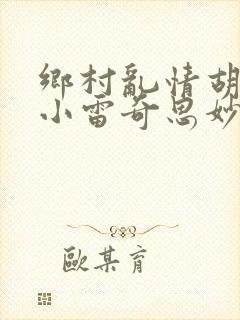 鄉村亂情胡
小雷奇思妙
歐某育